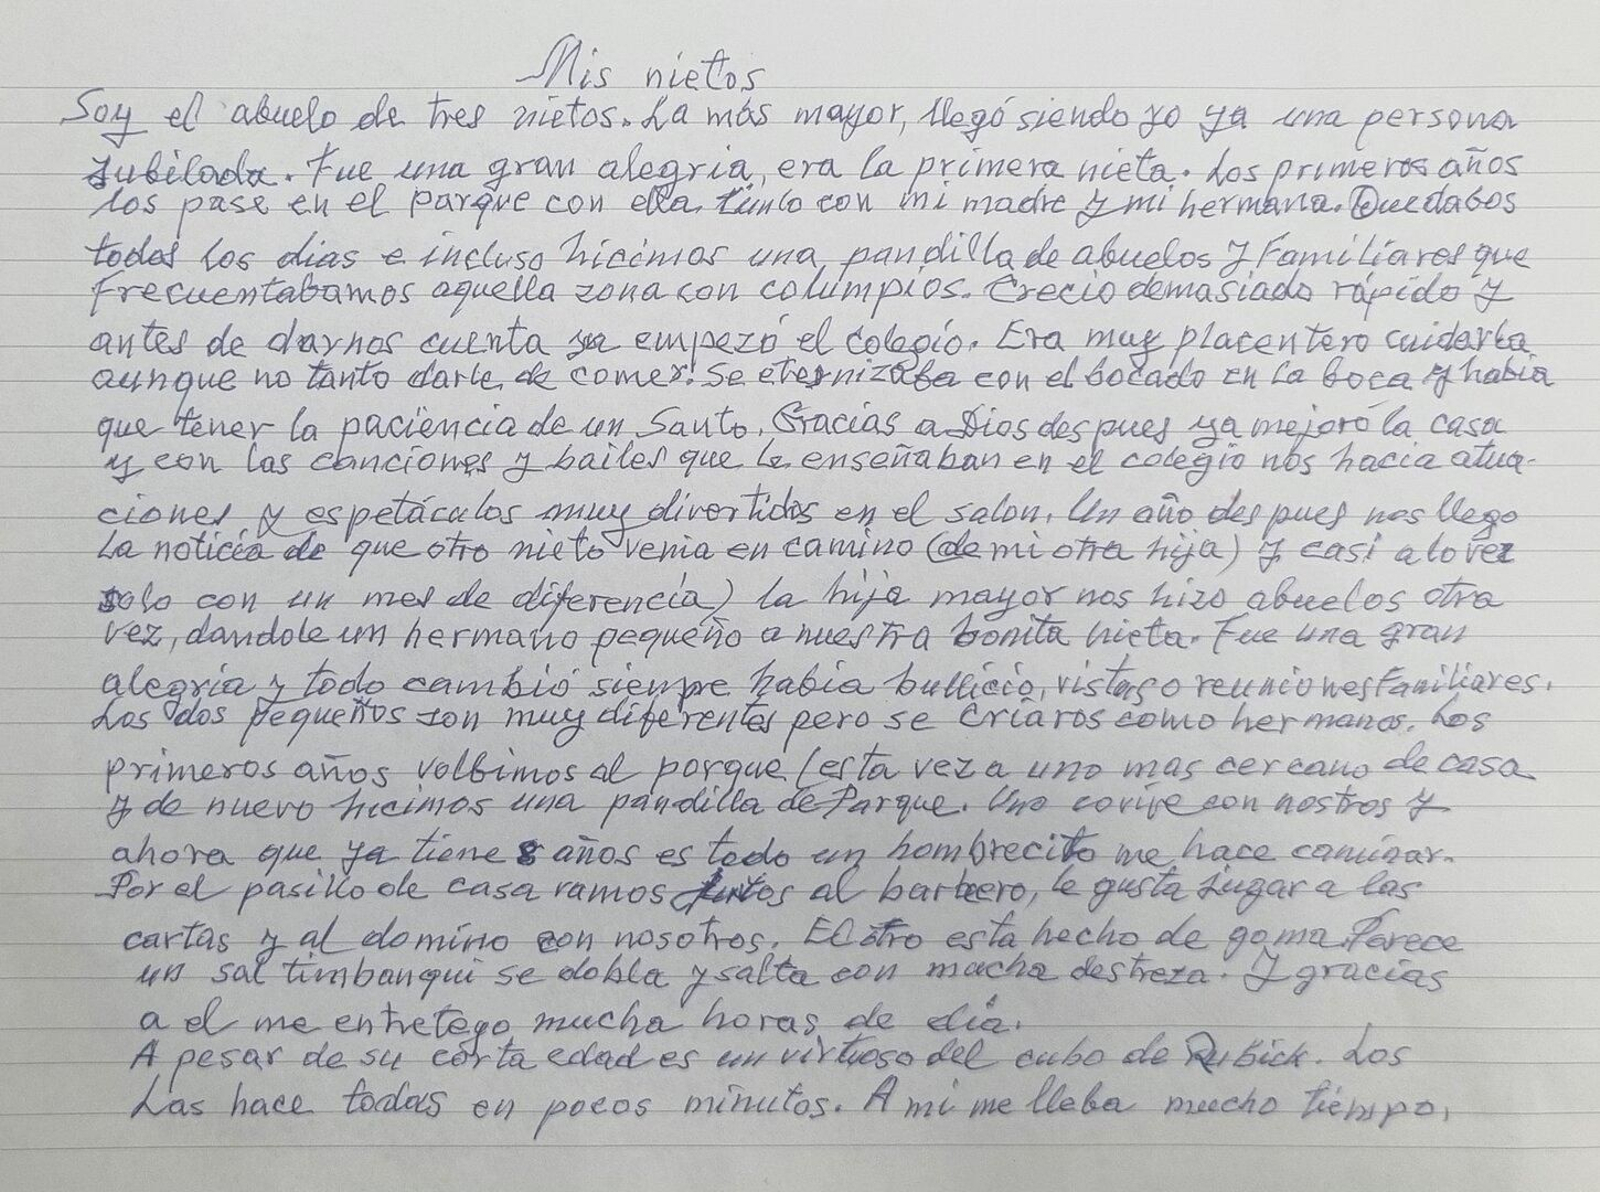 Mis nietos
Soy el abuelo de tres nietos. La más mayor, llegó siendo yo ya una persona
jubilada. Fue una gran alegria, era la primera nieta. Los primeros años
los pase en el parque con ella. Junto con mi madre y mi hermana. Quedabos
todos los dias e incluso hicimos una pandilla de abuelos y Familiares que
Frecuentabamos aquella zona con columpios. Crecio demasiado rápido y
antes de darnos cuenta ya empezó el colegio. Era muy placentero cuidarla
aunque no tanto darle de comer! Se eternizaba con el bocado en la boca y habia
que tener la paciencia de un Santo. Gracias a Dios despues ya mejoró la casa
y con las canciones y bailes que le enseñaban en el colegio nos hacia atua-
ciones y espetáculos muy divertidos en el salon. Un año despues nos llego
La noticia de que otro nieto venia en camino (de mi otra hija) y casi a lo vez
solo con un mes de diferencia) la hija mayor nos hizo abuelos otra
vez, dandole un hermano pequeño a nuestra bonita nieta. Fue una gran
alegria y todo cambió siempre habia bullicio, vistas o reuniones Familiares.
Los dos pequeños son muy diferentes pero se criaros como hermanos. Los
primeros años volbimos al porque (esta vez a uno mas cercano de casa
y de nuevo hicimos una pandilla de Parque. Uno covive con nostros y
ahora que ya tiene 8 años es todo un hombrecito me hace caminar.
Por el pasillo de casa vamos juntos al barbero, le gusta jugar a las
cartas y al domino con nosotros. El otro esta hecho de goma. Parece
un sal timbanqui se dobla y salta con mucha destreza. Y gracias
a el me entretego mucha horas de dia.
A pesar de su corta edad es un virtuoso del cubo de Rubick. Los
Las hace todas en pocos minutos. A mi me lleba mucho tiempo.